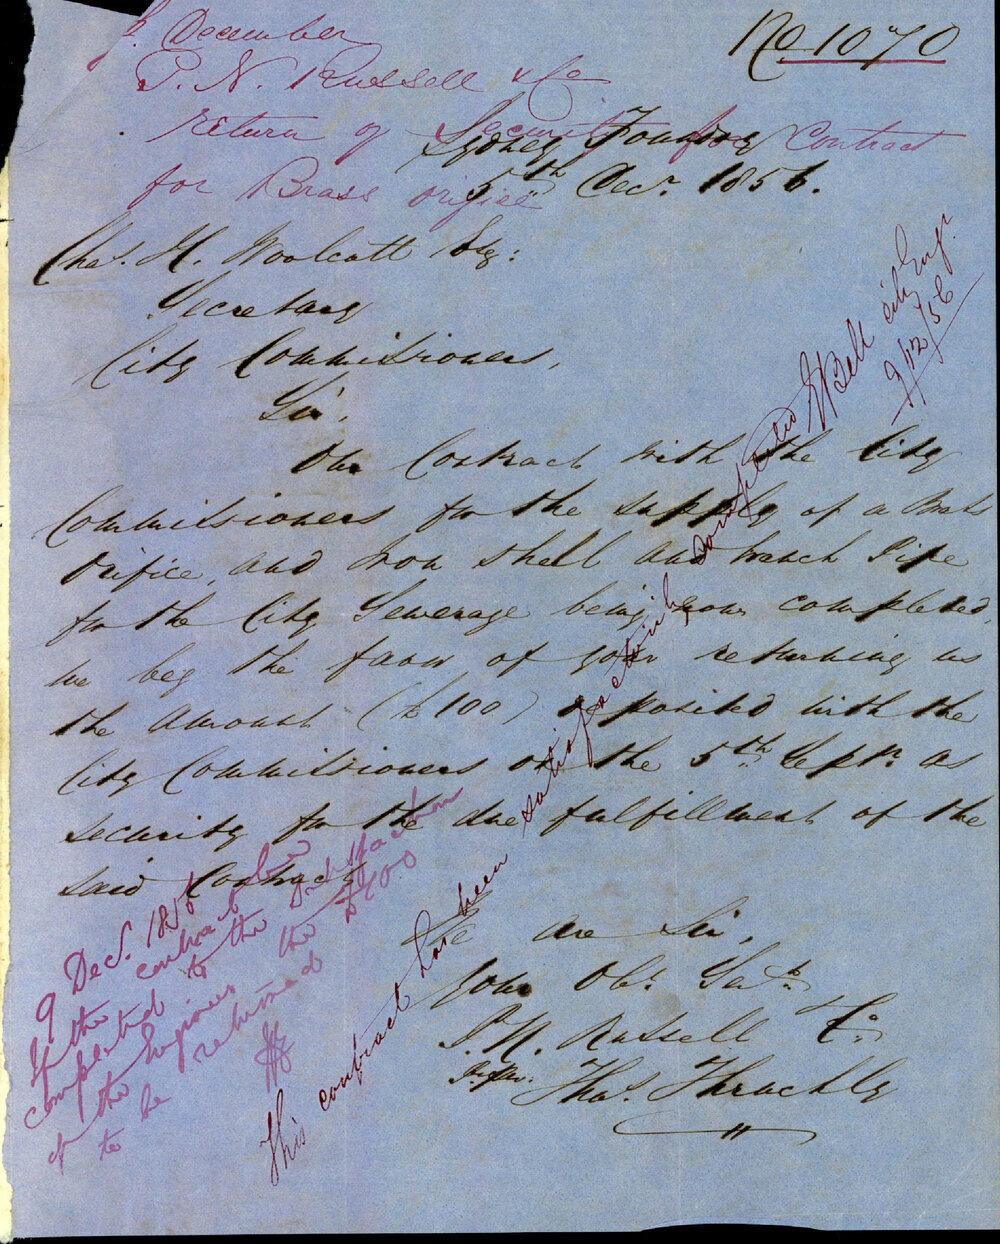 No 1070
December
P. N. Russell & Co
return of security for Contract
for Brass orifice
Sydney Foundry
5th Decr. 1856.
Chas. H. Woolcott Esq:
Secretary
City Commissioners,
Sir,
Our Contract with the City
Commissioners for the supply of a Brass
Orifice, and Iron shell and branch Pipe
for the City Sewerage being now completed,
we beg the favor of your returning us
the amount (£100) deposited with the
City Commissioners on the 5th Septr. as
security for the due fulfillment of the
said Contract
We are Sir,
Your Obt. Servts.
P. N. Russell & Co:
Thos. Thrackly
This contract has been satisfactorily completed E Bell city Engr.
9/12/56
9 Decr. 1856
If the contract be
completed to the satisfaction
of the Engineer the £100
to be returned